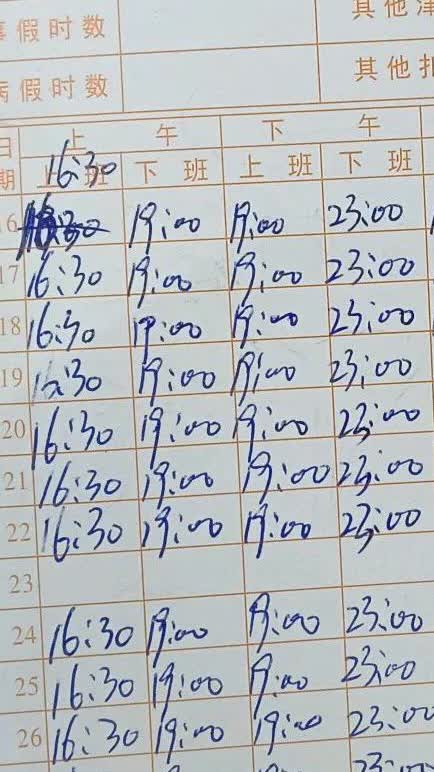 事假时数 其他津
病假时数 其他扣
日 上 午 下 午
16:30
期 上 班 下 班 上 班 下 班
16 16:30 19:00 19:00 23:00
17 16:30 19:00 19:00 23:00
18 16:30 19:00 19:00 23:00
19 16:30 19:00 19:00 23:00
20 16:30 19:00 19:00 23:00
21 16:30 19:00 19:00 23:00
22 16:30 19:00 19:00 23:00
23
24 16:30 19:00 19:00 23:00
25 16:30 19:00 19:00 23:00
26 16:30 19:00 19:00 23:00